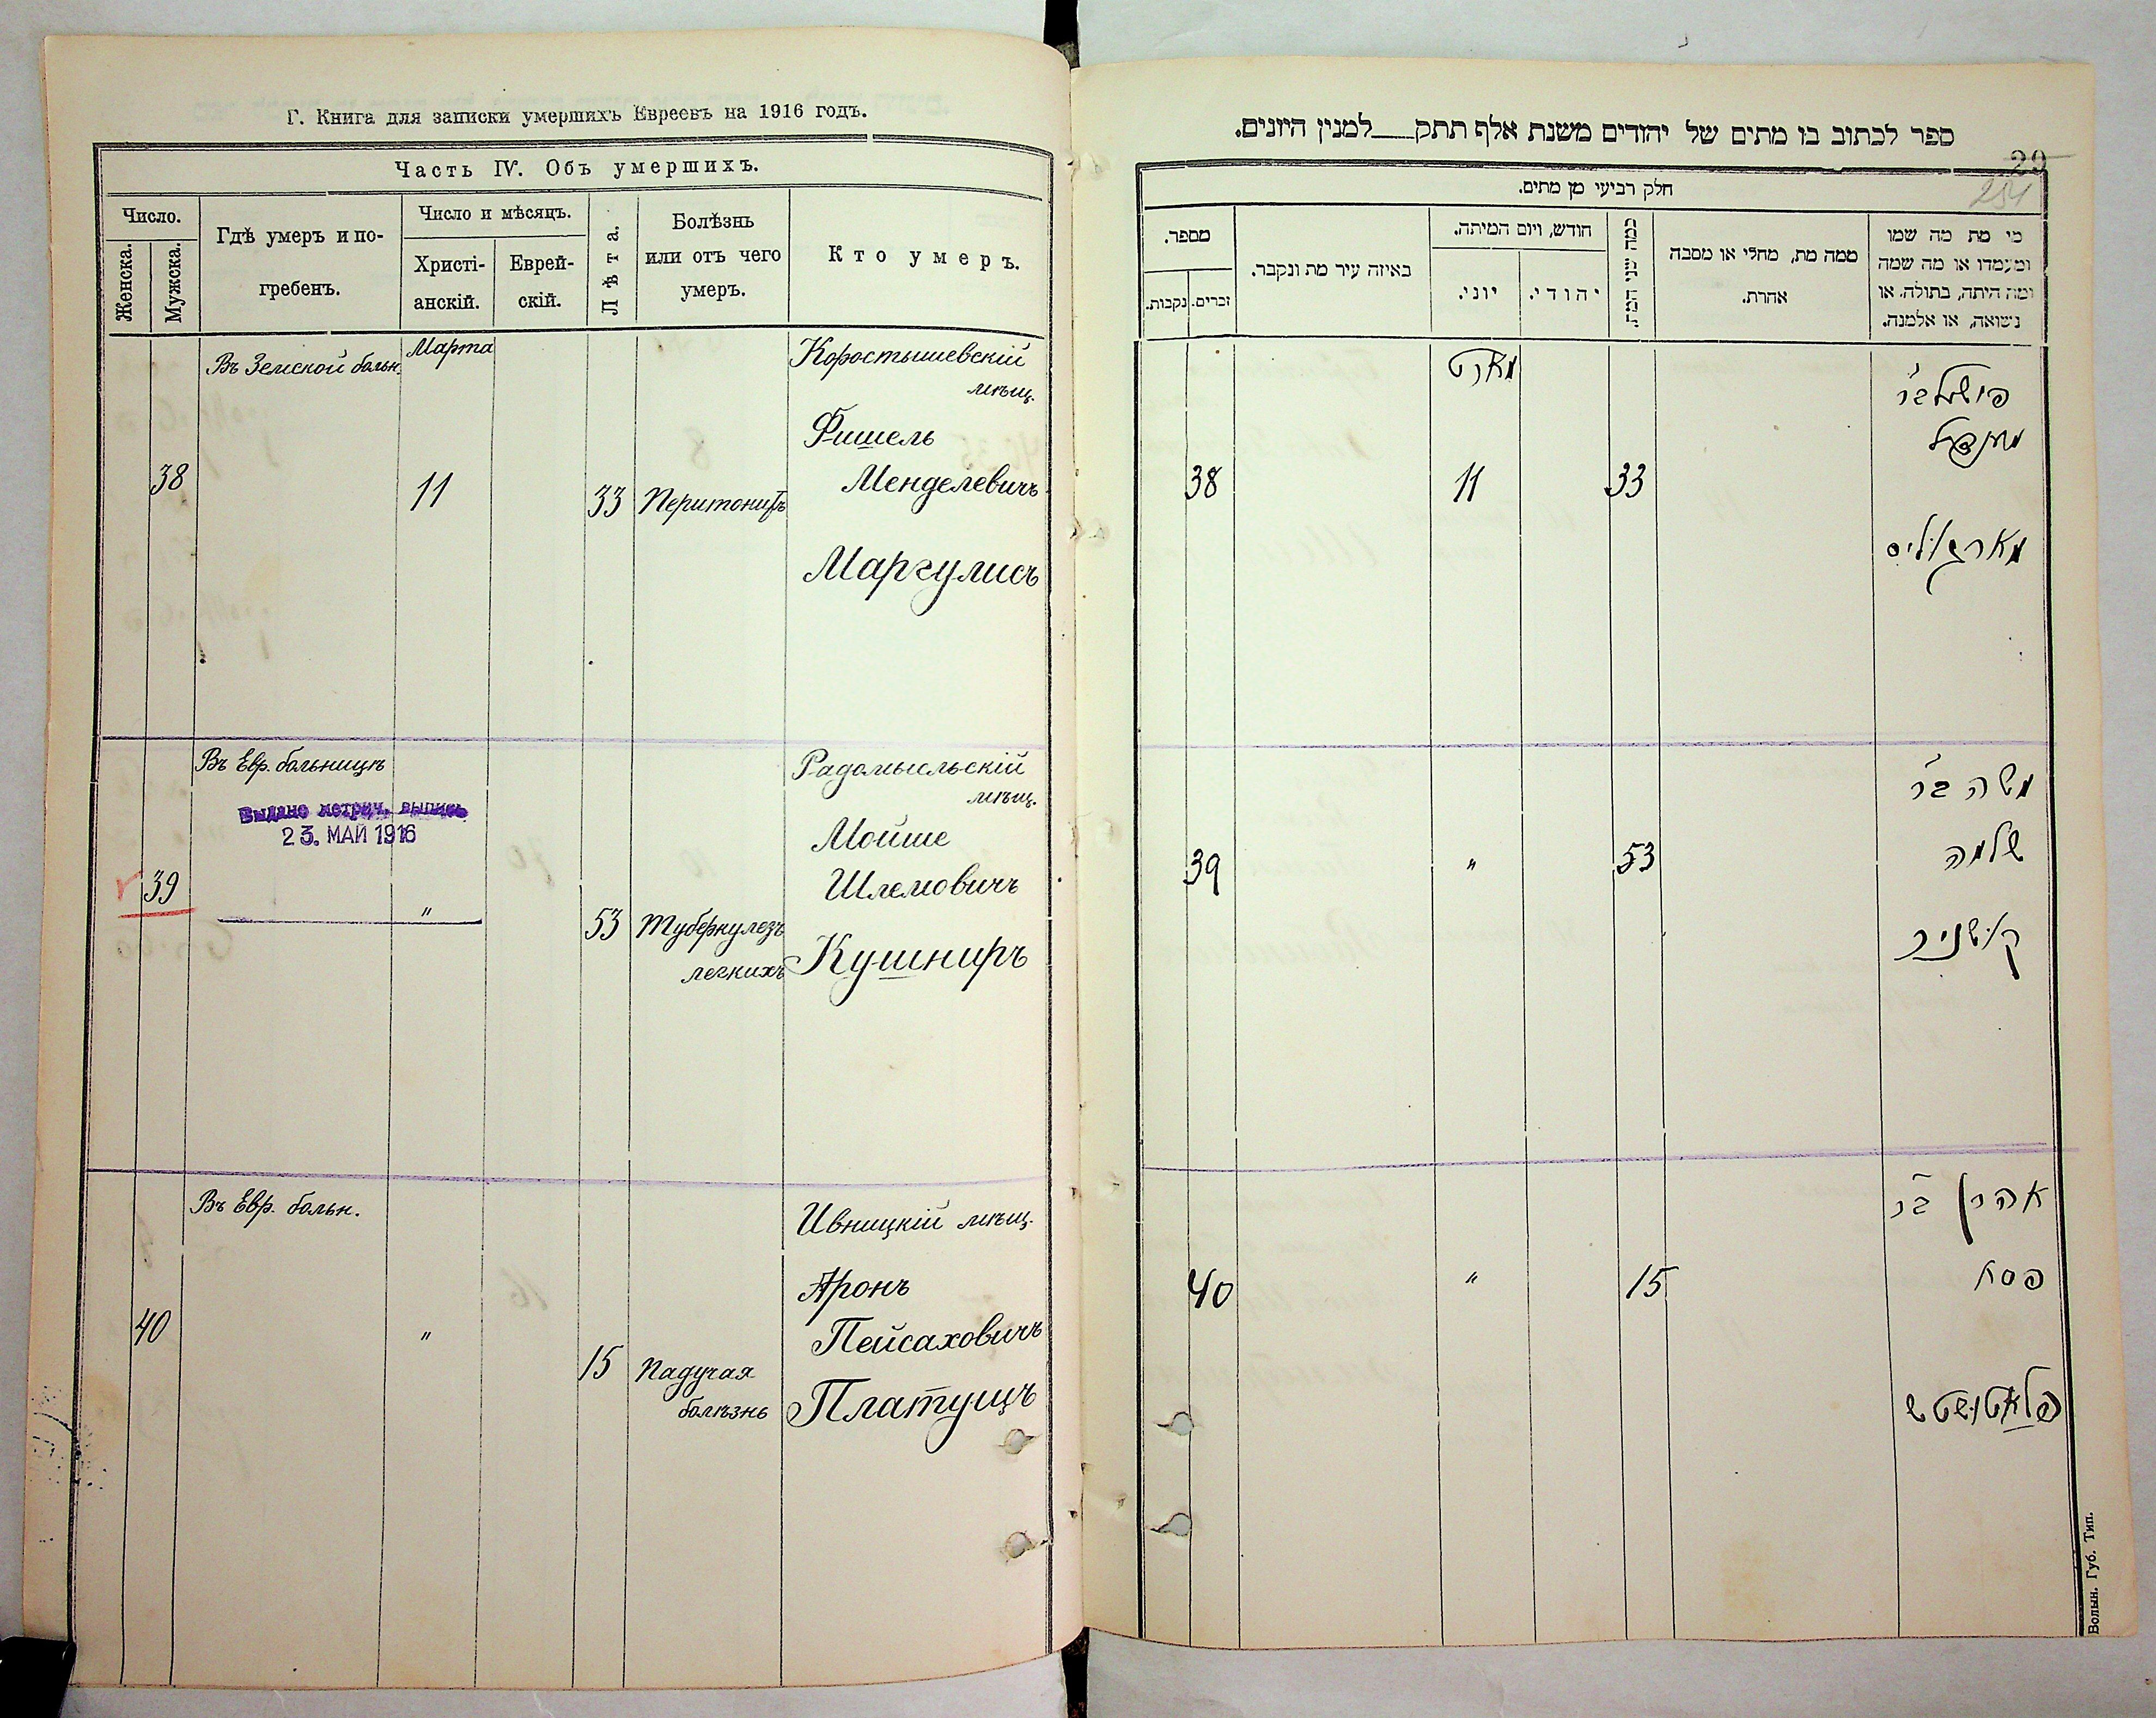 Г. Книга для записки умершихъ Евреевъ на 1916 годъ.
Часть IV. Объ умершихъ.
Число.
Женска.
Мужска.
Гдѣ умеръ и по-
гребенъ.
Число и мѣсяцъ.
Христі-
анскій.
Еврей-
скій.
Лѣта.
Болѣзнь
или отъ чего
умеръ.
Кто умеръ.
Въ Земской больн.
Марта
Коростышевскій
мѣщ.
Фишель
38
11
33
Перитонитъ
Менделевичъ
Маргулисъ
Въ Евр. больницѣ
Выдано метрич. выпись
23. МАЙ 1916
Радомысльскій
мѣщ.
Мойше
39
"
53
Туберкулезъ
легкихъ
Шлемовичъ
Кушниръ
Въ Евр. больн.
Ивницкій мѣщ.
Аронъ
40
"
15
Падучая
болѣзнь
Пейсаховичъ
Платущъ
ספר לכתוב בו מתים של יהודים משנת אלף תתק למנין היונים.
29
254
חלק רביעי מן מתים.
מי מת מה שמו
ומעמדו או מה שמה
ומה היתה, בתולה, או
נשואה, או אלמנה.
ממה מת, מחלי או מסבה
אחרת.
כמה שני המת.
חודש, ויום המיתה.
יהודי.
יוני.
באיזה עיר מת ונקבר.
מספר.
זכרים.
נקבות.
מארט
פישל בר
מענדיל
33
11
38
מארגוליס
משה בר
שלמה
53
"
39
קושניר
אהרן בר
פסח
15
"
40
פלאטושטש
Волын. Губ. Тип.